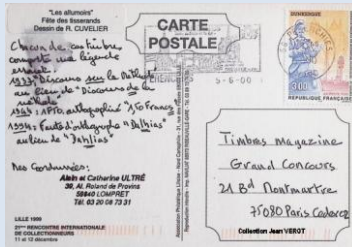 "Les allumoirs"
Fête des tisserands
Dessin de R. CUVELIER
Chacun de ces timbres
comporte une légende
erronée :
1937 "Discours sur la Méthode
au lieu de "Discours de la
méthode
1948 : APPO, autographié "150 Francs
1994 : Faute d'orthographe "Dalhias"
au lieu de "Dahlias"
Mes Coordonnées :
Alain et Catherine ULTRÉ
39, Al. Roland de Provins
59840 LOMPRET
Tél. 03 20 08 73 31
LILLE 1999
27ème RENCONTRE INTERNATIONALE
DE COLLECTIONNEURS
11 et 12 décembre
CARTE
POSTALE
5-6-00
DUNKERQUE
3,00
RÉPUBLIQUE FRANÇAISE
Timbres magazine
Grand Concours
21 Bd Montmartre
75080 Paris Cedex 02
Collection Jean VEROT